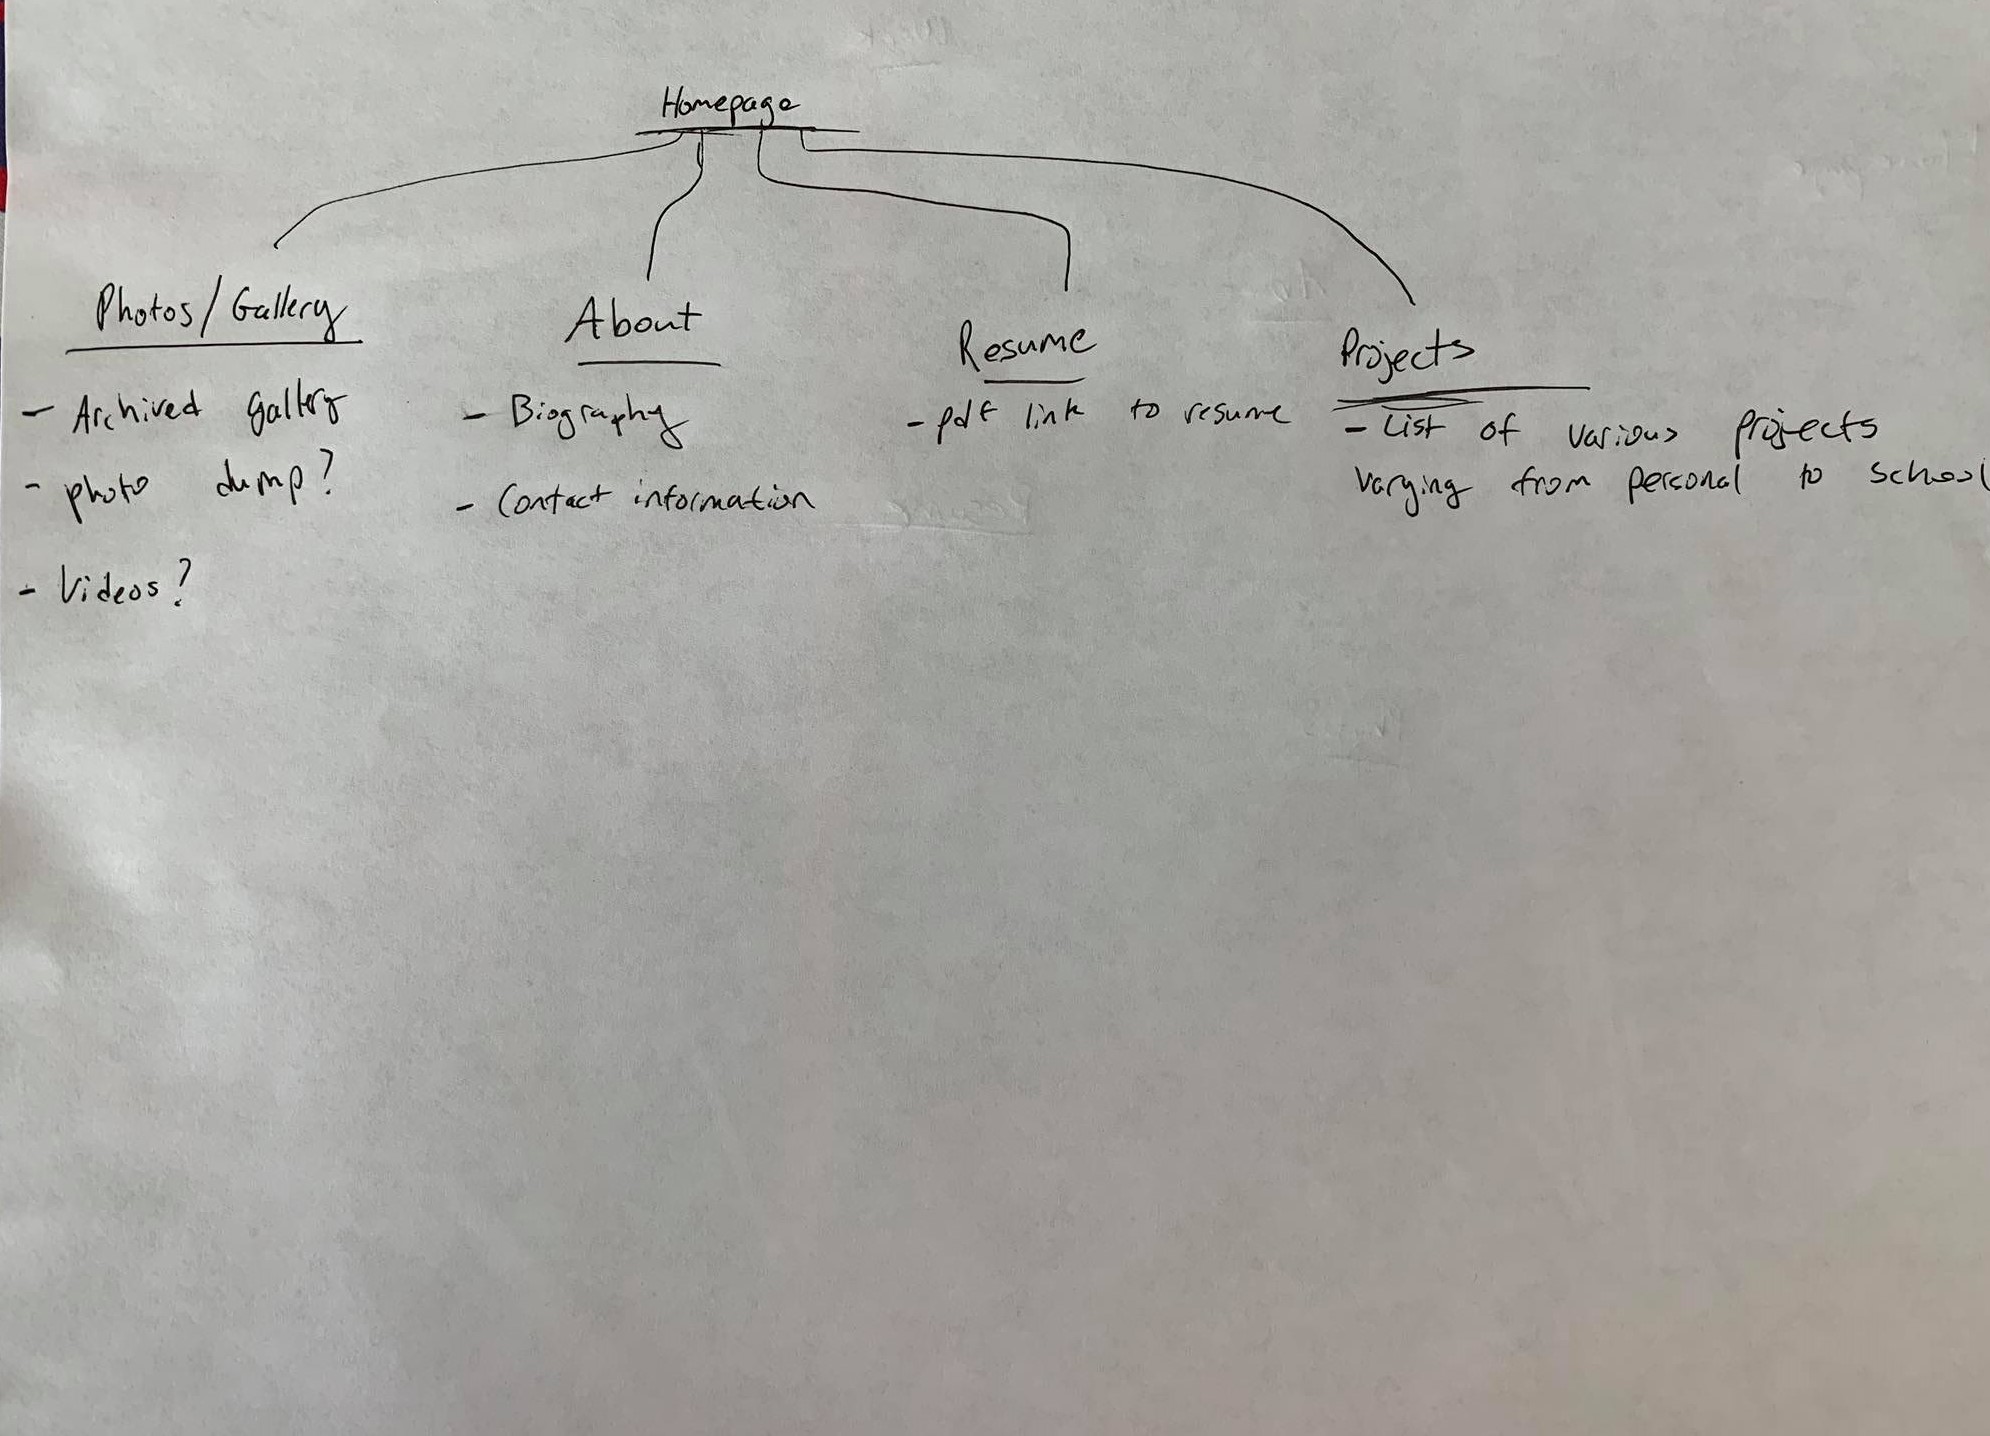 Homepage
Photos/Gallery
- Archived gallery
- photo dump?
- Videos?
About
- Biography
- Contact information
Resume
- pdf link to resume
Projects
- List of various projects
varying from personal to school